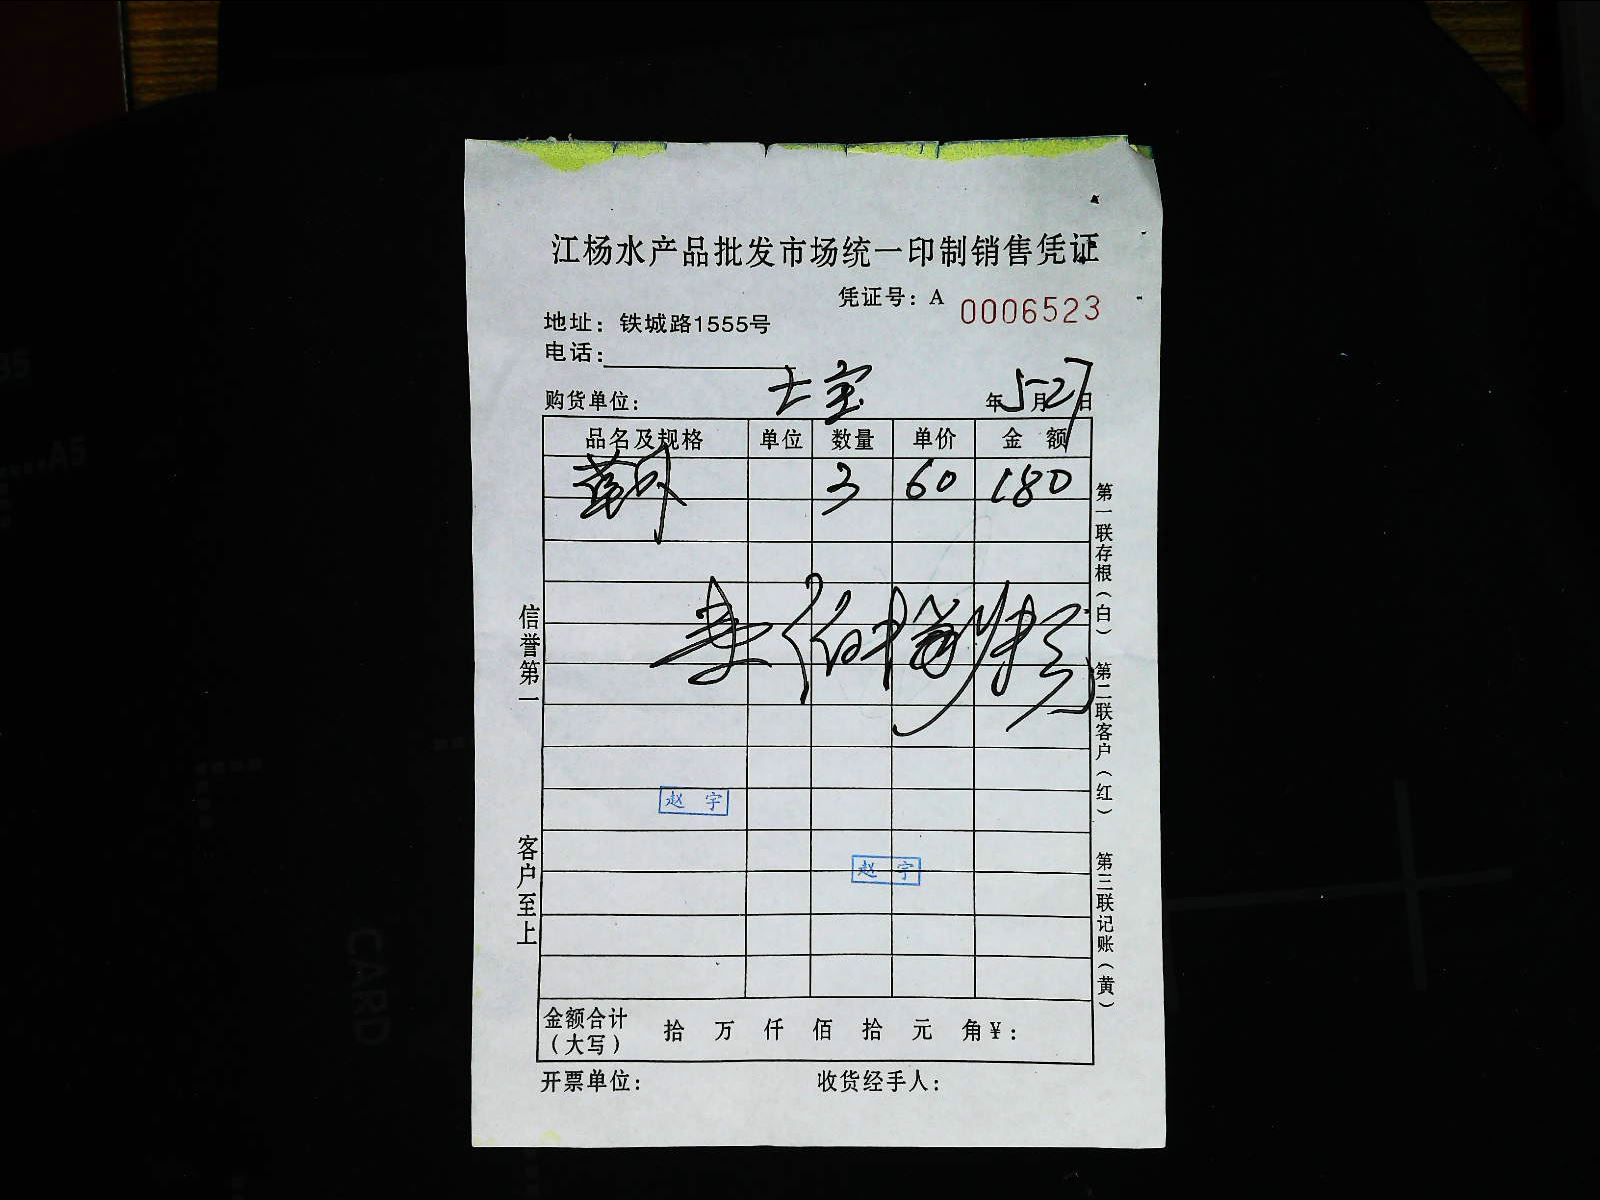 江杨水产品批发市场统一印制销售凭证
凭证号：A 0006523
地址：铁城路1555号
电话：
购货单位： 七宝 年5月27日
品名及规格 单位 数量 单价 金额
3 60 180
信誉第一
客户至上
第一联存根（白）
第二联客户（红）
第三联记账（黄）
赵宇
赵宇
金额合计（大写） 拾 万 仟 佰 拾 元 角 ¥：
开票单位： 收货经手人：